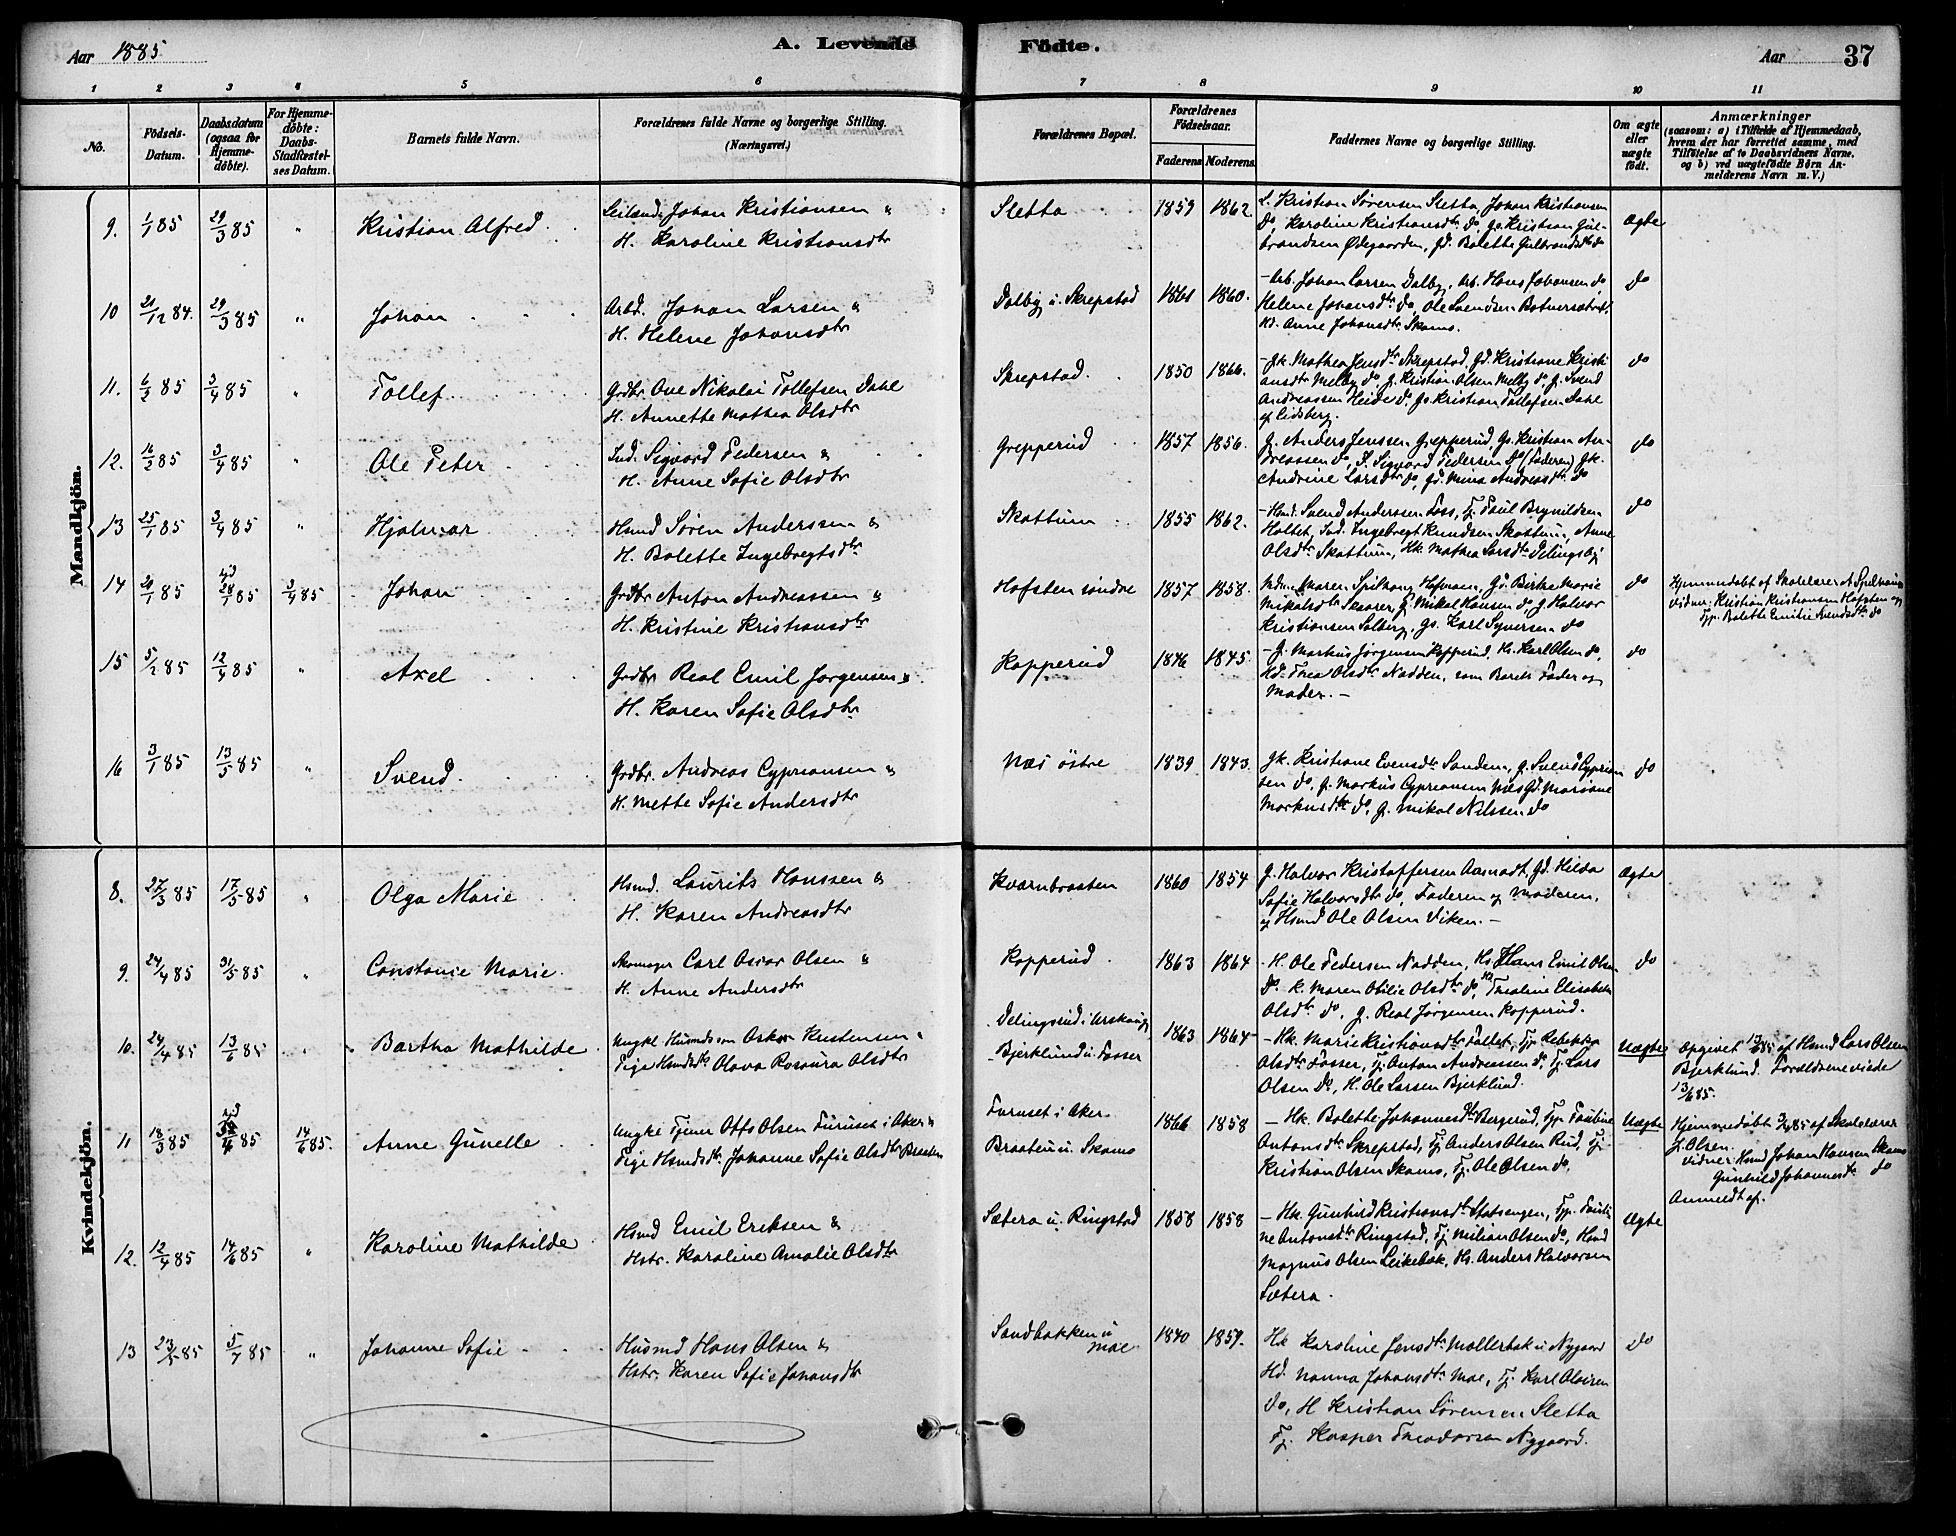 Aar 1885
A. Levende
Födte.
Aar
37
1 2 3 4 5 6 7 8 9 10 11
No.
Födsels-
Datum.
Daabsdatum
(ogsaa for
Hjemme-
döbte).
For Hjemme-
döbte:
Daabs-
Stadfæstel-
ses Datum.
Barnets fulde Navn.
Forældrenes fulde Navne og borgerlige Stilling.
(Næringsvei.)
Forældrenes Bopæl.
Forældrenes
Födselsaar.
Faderens. Moderens.
Faddernes Navne og borgerlige Stilling.
Om ægte
eller
uægte
födt.
Anmærkninger
(saasom: a) i Tilfælde af Hjemmedaab,
hvem der har forrettet samme, med
Tilföielse af to Daabsvidners Navne,
og b) ved uægtefödte Börn An-
melderens Navn m. V.)
Mandkjön.
9. 1/1 85 29/3 85 " Kristian Alfred
Leilænd. Johan Kristiansen &
H. Karoline Kristiansdtr
Sletta 1859 1862.
L. Kristian Sørensen Sletta, Johan Kristiansen
do, Karoline Kristiansdtr do, Gs. Kristian Gul-
brandsen Ødegaarden, Gd. Bolette Gulbrandsdtr do
Ægte
10 21/12 84. 29/3 85 " Johan
Arbd. Johan Larsen &
H. Helene Johansdtr
Dalby u. Skrepstad 1861 1860.
- Arb. Johan Larsen Dalby, Arb. Hans Johansen do,
Helene Johansdtr do, Ole Svendsen
Kd. Anne Johansdtr Skams.
do
11. 6/2 85 3/4 85 " Tollef
Grdbr. Ove Nikolai Tollefsen Dahl
H. Annette Mathea Olsdtr
Skrepstad. 1850 1866.
- Gk. Mathea Jensdtr Skrepstad, Gd. Kristiane Kristi
ansdtr Melby do, G. Kristian Olsen Melby do, G. Svend
Andreassen Heide do, Gs. Kristian Tollefsen Dahl
af Eidsberg.
do
12. 16/2 85 3/4 85 " Ole Peter
Ind. Sigvard Pedersen &
H. Anne Sofie Olsdtr
Grepperud 1857 1856.
G. Anders Jenssen Grepperud, Gs. Kristian An-
dreassen do, I. Sigvard Pedersen do (Faderen) Gk.
Andrine Larsdtr do, Gd. Mina Andreasdtr do
do
13 25/1 85 3/4 85 " Hjalmar
Hsmd Søren Anderssen &
H. Bolette Ingebregtsdtr
Skattum 1855 1862.
- Hsmd. Svend Anderssen Foss, Tj. Paul Brynildsen
Holtet, Ind. Ingebregt Knudsen Skattum, Anne
Olsdtr Skattum, Hk. Mathea Larsdtr Delingsby
do
14 20/1 85 28/1 85 3/4 85 Johan
Grdbr Anton Andreassen &
H. Kristine Kristiansdtr
Hofsten søndre 1857 1858.
Mdm. Maren Spilhaug Hofmoen, Gd. Birthe Marie
Mikalsdtr Skaarer, G. Mikal Hansen do, G. Halvor
Kristiansen Solberg, Gs. Karl Syversen do
do
Hjemmedøbt af Skolelærer A Spilhaug
Vidner: Kristian Kristiansen Hofsten og
Tjp. Bolette Emilie Svendsdtr do
15 5/2 85 12/4 85 " Axel
Grdbr. Real Emil Jørgensen &
H. Karen Sofie Olsdtr
Kopperud 1846 1845.
- G. Markus Jørgensen Kopperud, Hs. Karl Olsen do,
Hd. Thea Olsdtr Nadden, som Barets Fader og
Moder. -
do
16 3/1 85 13/5 85 " Svend.
Grdbr. Andreas Cypriansen &
H. Mette Sofie Andersdtr
Næs østre 1839 1843.
Gk. Kristiane Evensdtr Sanden, G. Svend Cyprian
sen do, G. Markus Cypriansen Næs Gd. Mariane
Markusdtr do, G. Mikal Nilssen do
do
Kvindekjön.
8. 27/3 85 17/5 85 " Olga Marie
Hsmd. Laurits Hanssen &
H. Karen Andreasdtr
Kværnbraaten 1860 1854
G. Halvor Kristoffersen Aamodt, Gd. Hilda
Sofie Halvorsdtr do, Faderen og Moderen,
og Hsmd Ole Olsen Viken. -
Ægte
9. 24/4 85 31/5 85 " Constance Marie.
Skomager Carl Oscar Olsen &
H. Anne Andersdtr
Kopperud. 1863 1864
- H. Ole Pedersen Nadden, Hs. Hans Emil Olsen
do K. Maren Otilie Olsdtr do, Hd Thealine Elisabeth
Olsdtr do, G. Real Jørgensen Kopperud.
do
10. 24/4 85 13/6 85 " Bartha Mathilde
Ungkl Husmdssøn Oskar Kristensen &
Pige Hsmdsdtr Olava Rosaura Olsdtr
Delingsrud i Urskaug
- Bjerklund u. Fosser
1863 1864
- Hk. Marie Kristiansdtr Tollet, Tjp. Rebekka
Olsdtr Fosser, Tj. Anton Andreassen do, Tj. Lars
Olsen do, H. Ole Larsen Bjerklund.
Uægte
Opgivet 13/6 85 af Hsmd Lars Olsen
Bjerklund. Forældrene viede
13/6 85.
11 18/3 85 85 14/6 85. Anne Gunelle
Ungkl Tjener Otto Olsen Furuset i Aker &
Pige Hsmdsdtr. Johanne Sofie Olsdtr Braaten
Furuset i Aker
Braaten u. Skams
1866 1858
- Hk. Bolette Johannesdtr Bergerud, Tjp. Pauline
Antonsdtr Skrepstad, Tj. Anders Olsen Rud, Tj.
Kristian Olsen Skams, Tj. Ole Olsen do,
Uægte
Hjemmedøbt af Skolelærer
J. Olsen.
Vidner: Hsmd Johan Hansen Skams
Gunhild Johannesdtr do
Anmeldt af.
12. 12/4 85 14/6 85 " Karoline Mathilde
Hsmd Emil Eriksen &
Hstr. Karoline Amalie Olsdtr
Sætera u. Ringstad 1858 1858
- Hk. Gunhild Kristiansdtr Statsengen, Tjp. Pauli
ne Antonsdtr Ringstad, Tj Milian Olsen do, Hsmd
Magnus Olsen Leikebak, Hs. Anders Halvorsen
Sætera.
Ægte
13 23/5 85 5/7 85 " Johanne Sofie
Husmd Hans Olsen &
Hstr. Karen Sofie Johansdtr
Sandbakken u
Moe
1840 1859.
Hk Karoline Jensdtr Møllerbak u Nygaard
Hd. Nanna Johansdtr Moe, Tj. Karl Olausen
do, H Kristian Sørensen Sletta
Tj. Kasper Theodorsen Nygaard.
do